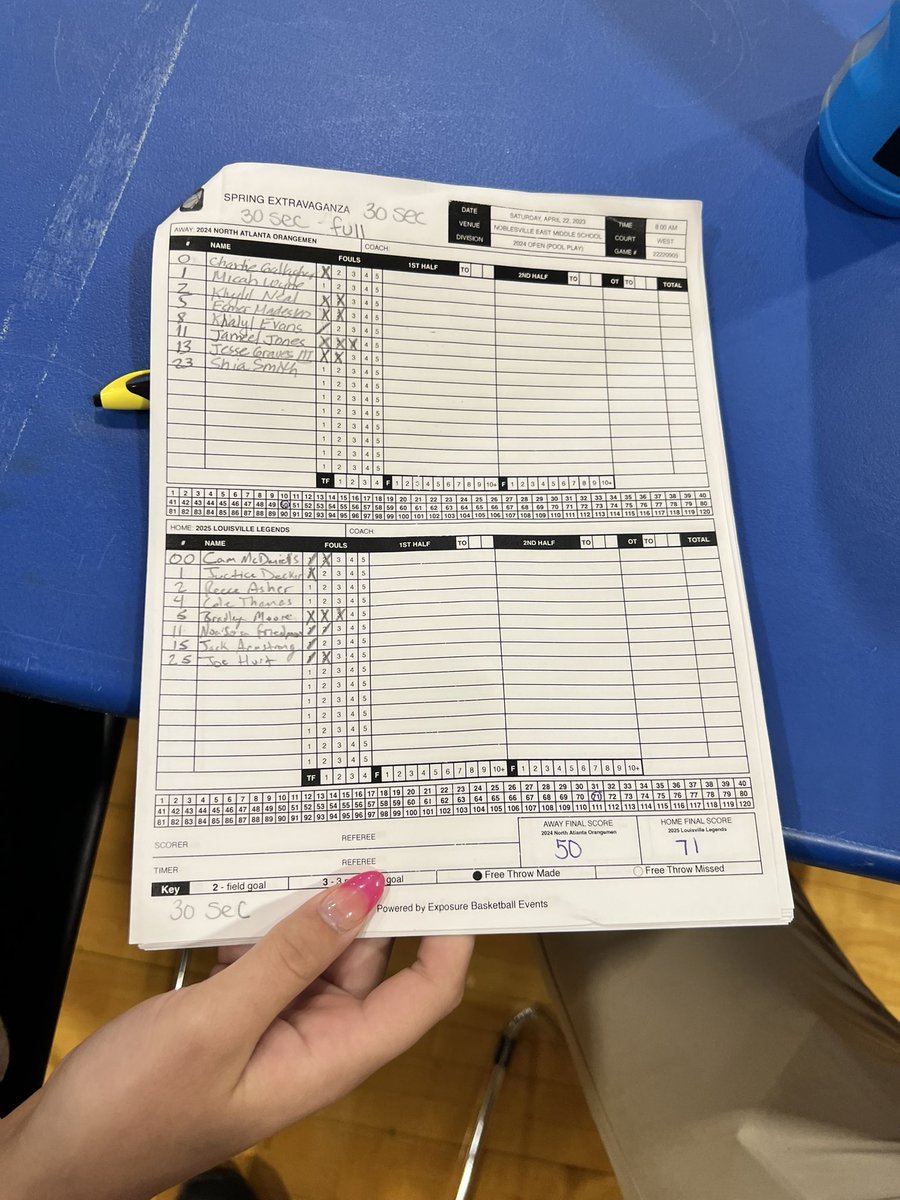 SPRING EXTRAVAGANZA
30 sec - full 30 sec
DATE SATURDAY, APRIL 22, 2023 TIME 8:00 AM
VENUE NOBLESVILLE EAST MIDDLE SCHOOL COURT WEST
DIVISION 2024 OPEN (POOL PLAY) GAME # 22220905
AWAY: 2024 NORTH ATLANTA ORANGEMEN COACH:
# NAME FOULS 1ST HALF TO 2ND HALF TO OT TO TOTAL
0 Charlie Gallagher X 2 3 4 5
1 Micah 1 2 3 4 5
2 Khylil Neal X X 3 4 5
5 X X 3 4 5
8 Khalyl Evans / 2 3 4 5
11 Jameel Jones X X X 4 5
13 Jesse Graves III X X 3 4 5
23 Shia Smith 1 2 3 4 5
1 2 3 4 5
1 2 3 4 5
1 2 3 4 5
1 2 3 4 5
1 2 3 4 5
1 2 3 4 5
1 2 3 4 5
TF 1 2 3 4 F 1 2 3 4 5 6 7 8 9 10+ F 1 2 3 4 5 6 7 8 9 10+
1 2 3 4 5 6 7 8 9 10 11 12 13 14 15 16 17 18 19 20 21 22 23 24 25 26 27 28 29 30 31 32 33 34 35 36 37 38 39 40
41 42 43 44 45 46 47 48 49 50 51 52 53 54 55 56 57 58 59 60 61 62 63 64 65 66 67 68 69 70 71 72 73 74 75 76 77 78 79 80
81 82 83 84 85 86 87 88 89 90 91 92 93 94 95 96 97 98 99 100 101 102 103 104 105 106 107 108 109 110 111 112 113 114 115 116 117 118 119 120
HOME: 2025 LOUISVILLE LEGENDS COACH:
# NAME FOULS 1ST HALF TO 2ND HALF TO OT TO TOTAL
00 Cam McDaniels / X 3 4 5
1 Justice Decker X 2 3 4 5
2 Reece Asher 1 2 3 4 5
4 Cole Thomas 1 2 3 4 5
5 Bradley Moore X X X 4 5
11 Friedman / / 3 4 5
15 Jack Armstrong / / 3 4 5
25 Joe Hurt / X 3 4 5
1 2 3 4 5
1 2 3 4 5
1 2 3 4 5
1 2 3 4 5
1 2 3 4 5
1 2 3 4 5
1 2 3 4 5
TF 1 2 3 4 F 1 2 3 4 5 6 7 8 9 10+ F 1 2 3 4 5 6 7 8 9 10+
1 2 3 4 5 6 7 8 9 10 11 12 13 14 15 16 17 18 19 20 21 22 23 24 25 26 27 28 29 30 31 32 33 34 35 36 37 38 39 40
41 42 43 44 45 46 47 48 49 50 51 52 53 54 55 56 57 58 59 60 61 62 63 64 65 66 67 68 69 70 71 72 73 74 75 76 77 78 79 80
81 82 83 84 85 86 87 88 89 90 91 92 93 94 95 96 97 98 99 100 101 102 103 104 105 106 107 108 109 110 111 112 113 114 115 116 117 118 119 120
SCORER REFEREE
TIMER REFEREE
AWAY FINAL SCORE HOME FINAL SCORE
2024 North Atlanta Orangemen 2025 Louisville Legends
50 71
Key 2 - field goal 3 - 3 goal Free Throw Made Free Throw Missed
30 sec Powered by Exposure Basketball Events